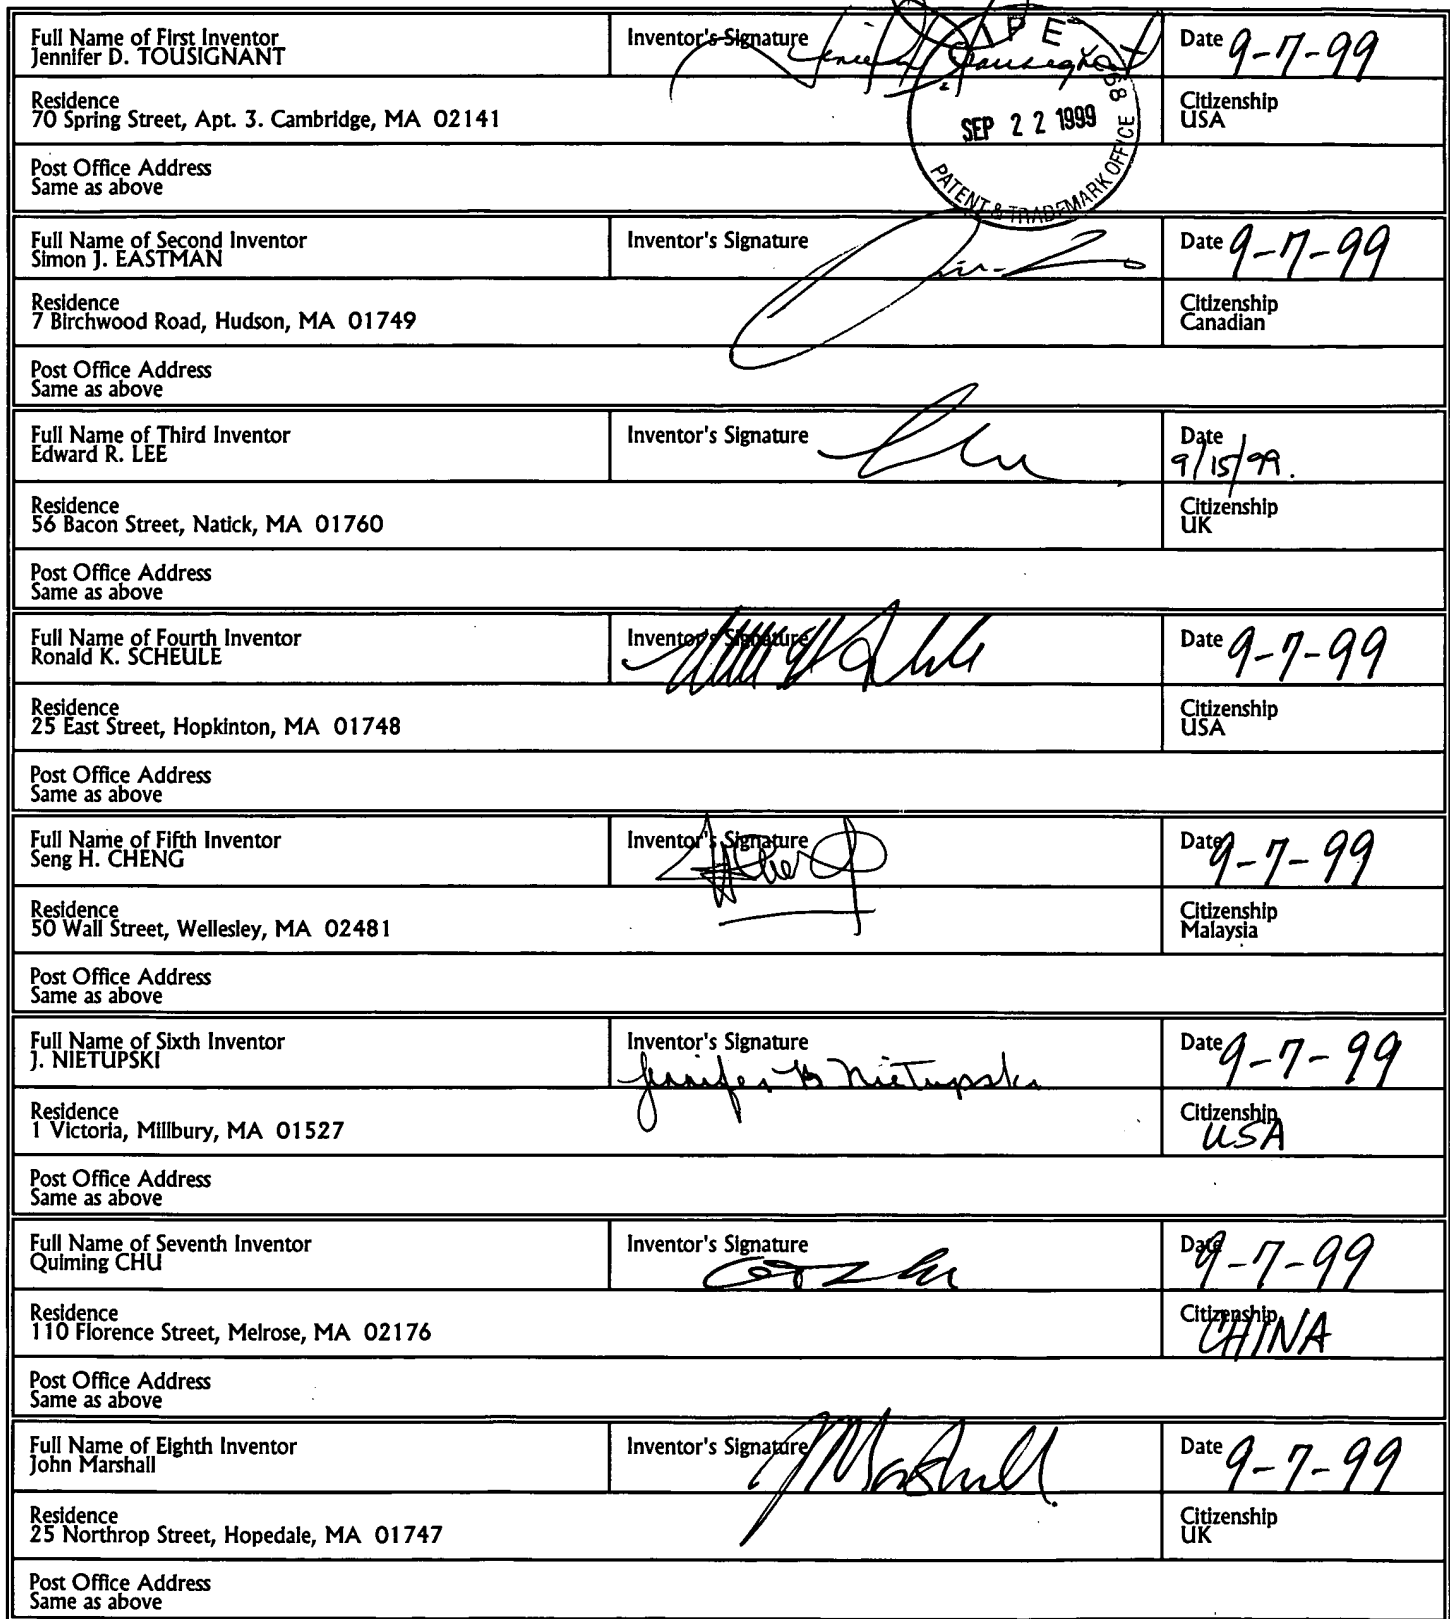 Full Name of First Inventor
Jennifer D. TOUSIGNANT
Inventor's Signature
Date 9-7-99
Residence
70 Spring Street, Apt. 3. Cambridge, MA 02141
Citizenship
USA
SEP 22 1999
PATENT & TRADEMARK OFFICE
Post Office Address
Same as above
Full Name of Second Inventor
Simon J. EASTMAN
Inventor's Signature
Date 9-7-99
Residence
7 Birchwood Road, Hudson, MA 01749
Citizenship
Canadian
Post Office Address
Same as above
Full Name of Third Inventor
Edward R. LEE
Inventor's Signature
Date
9/15/99.
Residence
56 Bacon Street, Natick, MA 01760
Citizenship
UK
Post Office Address
Same as above
Full Name of Fourth Inventor
Ronald K. SCHEULE
Inventor's Signature
Date 9-7-99
Residence
25 East Street, Hopkinton, MA 01748
Citizenship
USA
Post Office Address
Same as above
Full Name of Fifth Inventor
Seng H. CHENG
Inventor's Signature
Date 9-7-99
Residence
50 Wall Street, Wellesley, MA 02481
Citizenship
Malaysia
Post Office Address
Same as above
Full Name of Sixth Inventor
J. NIETUPSKI
Inventor's Signature
Jennifer B Nietupski
Date 9-7-99
Residence
1 Victoria, Millbury, MA 01527
Citizenship
USA
Post Office Address
Same as above
Full Name of Seventh Inventor
Quiming CHU
Inventor's Signature
Date 9-7-99
Residence
110 Florence Street, Melrose, MA 02176
Citizenship
CHINA
Post Office Address
Same as above
Full Name of Eighth Inventor
John Marshall
Inventor's Signature
JMarshall
Date 9-7-99
Residence
25 Northrop Street, Hopedale, MA 01747
Citizenship
UK
Post Office Address
Same as above